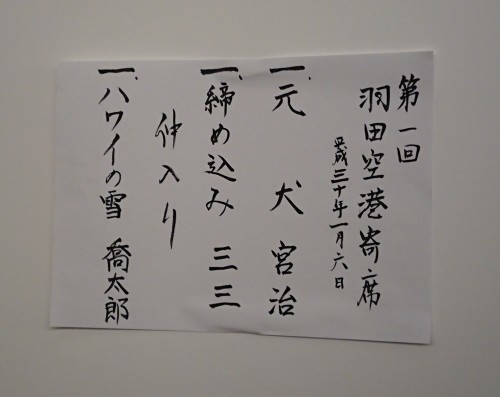 第一回
羽田空港寄席
平成三十年一月六日
一、元犬 宮治
一、締め込み 三三
仲入り
一、ハワイの雪 喬太郎